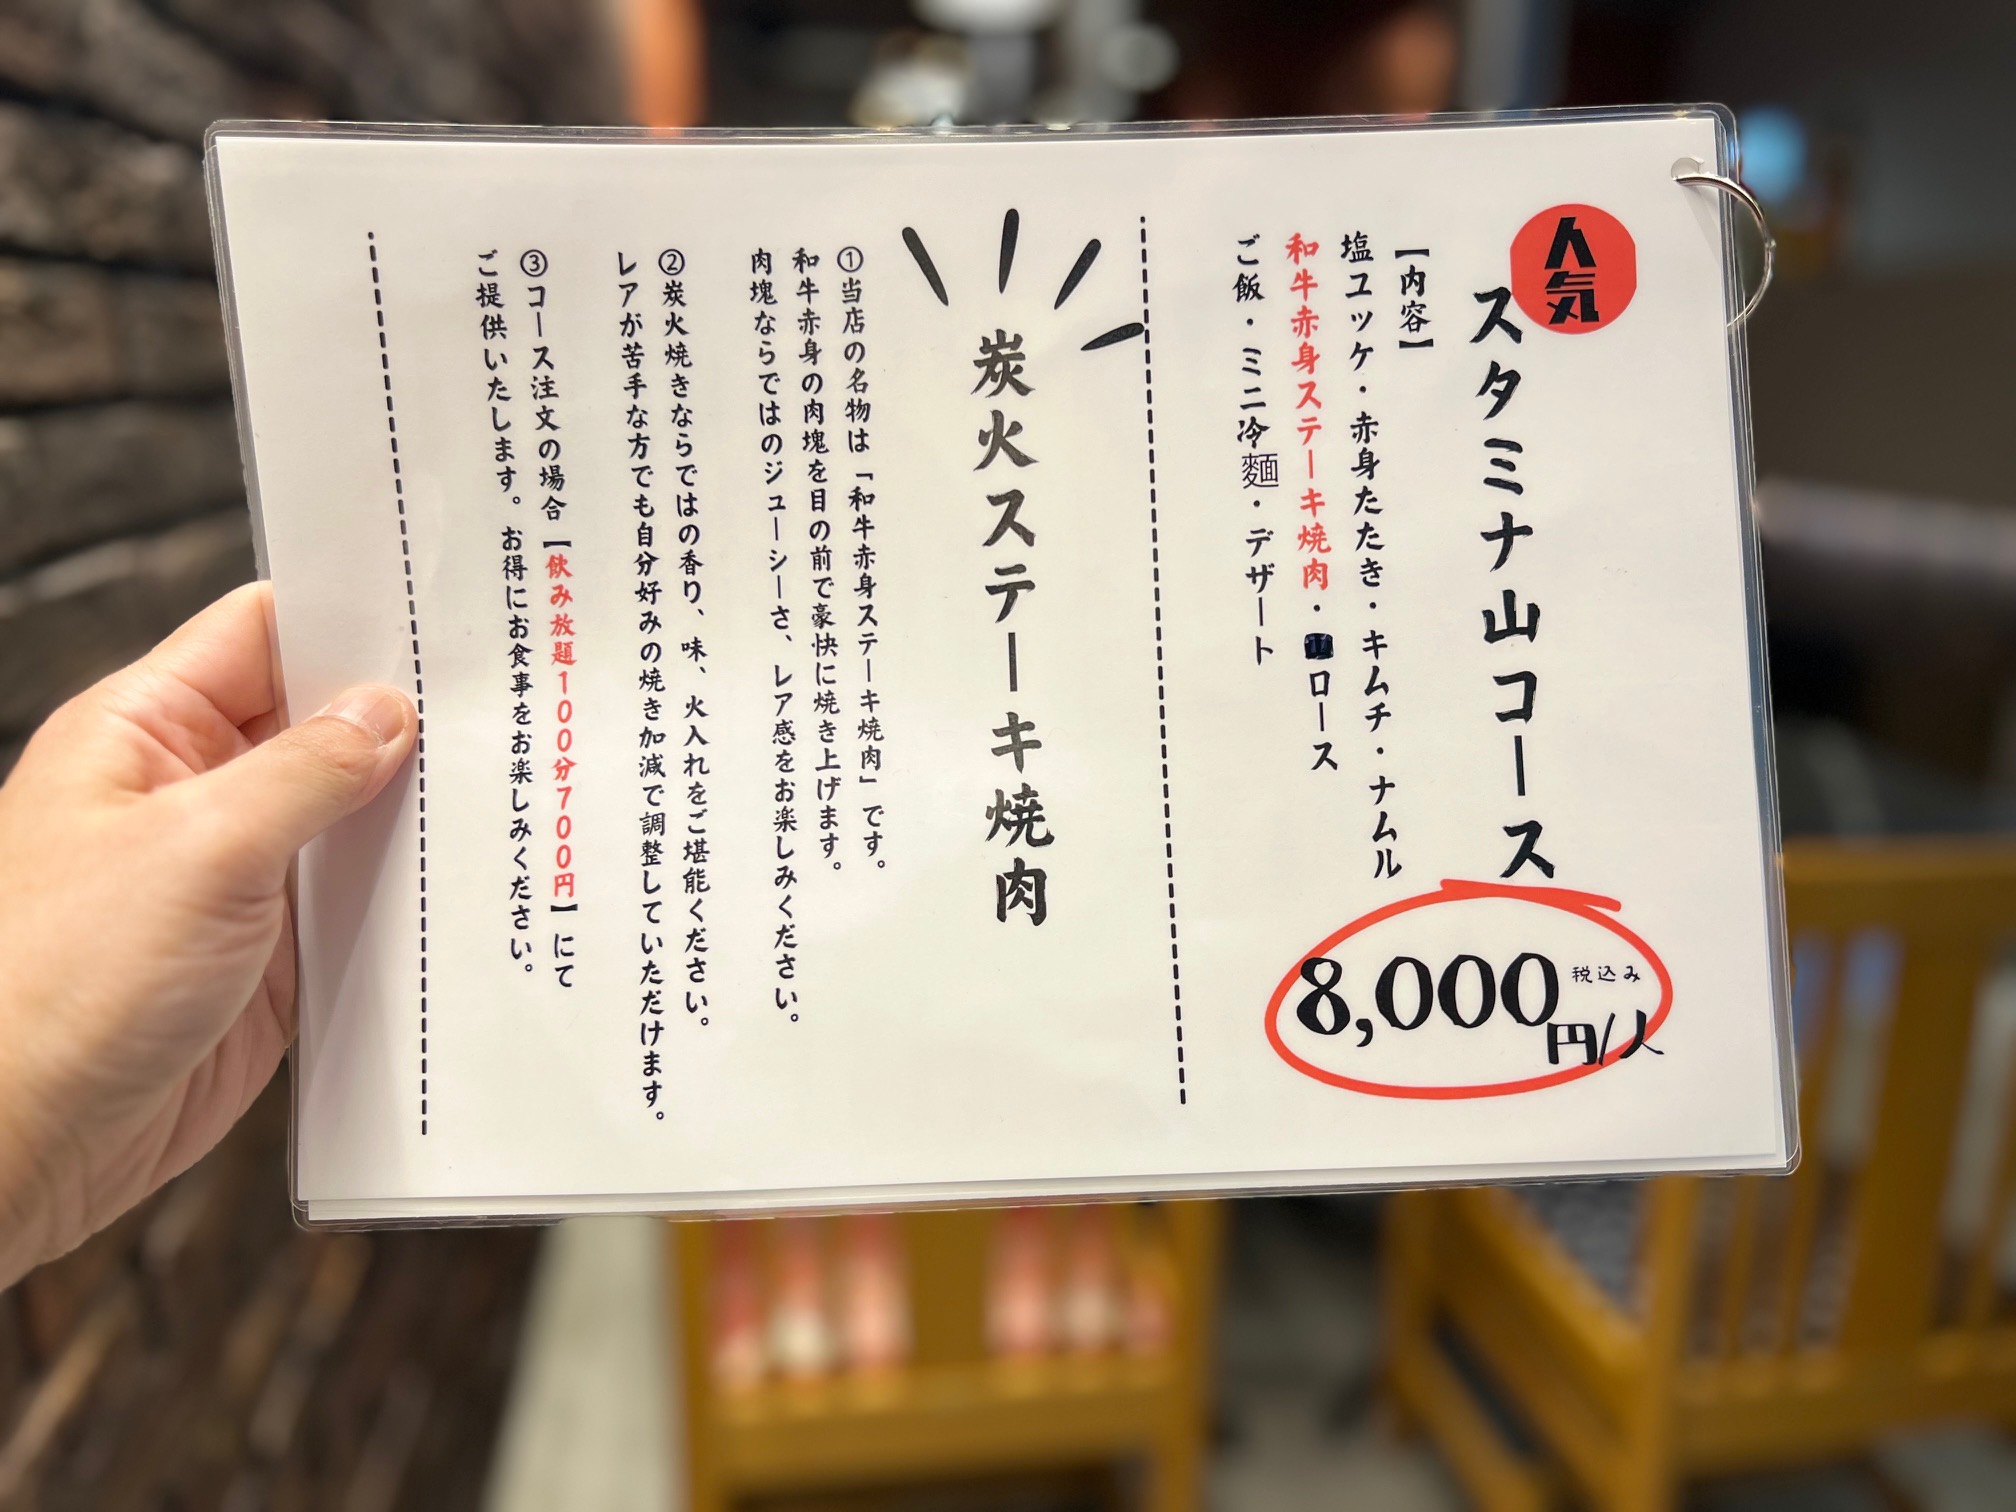 人気
スタミナ山コース
8,000円/人
税込み
【内容】
塩ユッケ・赤身たたき・キムチ・ナムル
和牛赤身ステーキ焼肉・ロース
ご飯・ミニ冷麺・デザート
炭火ステーキ焼肉
①当店の名物は「和牛赤身ステーキ焼肉」です。
和牛赤身の肉塊を目の前で豪快に焼き上げます。
肉塊ならではのジューシーさ、レア感をお楽しみください。
②炭火焼きならではの香り、味、火入れをご堪能ください。
レアが苦手な方でも自分好みの焼き加減で調整していただけます。
③コース注文の場合【飲み放題100分700円】にて
ご提供いたします。お得にお食事をお楽しみください。